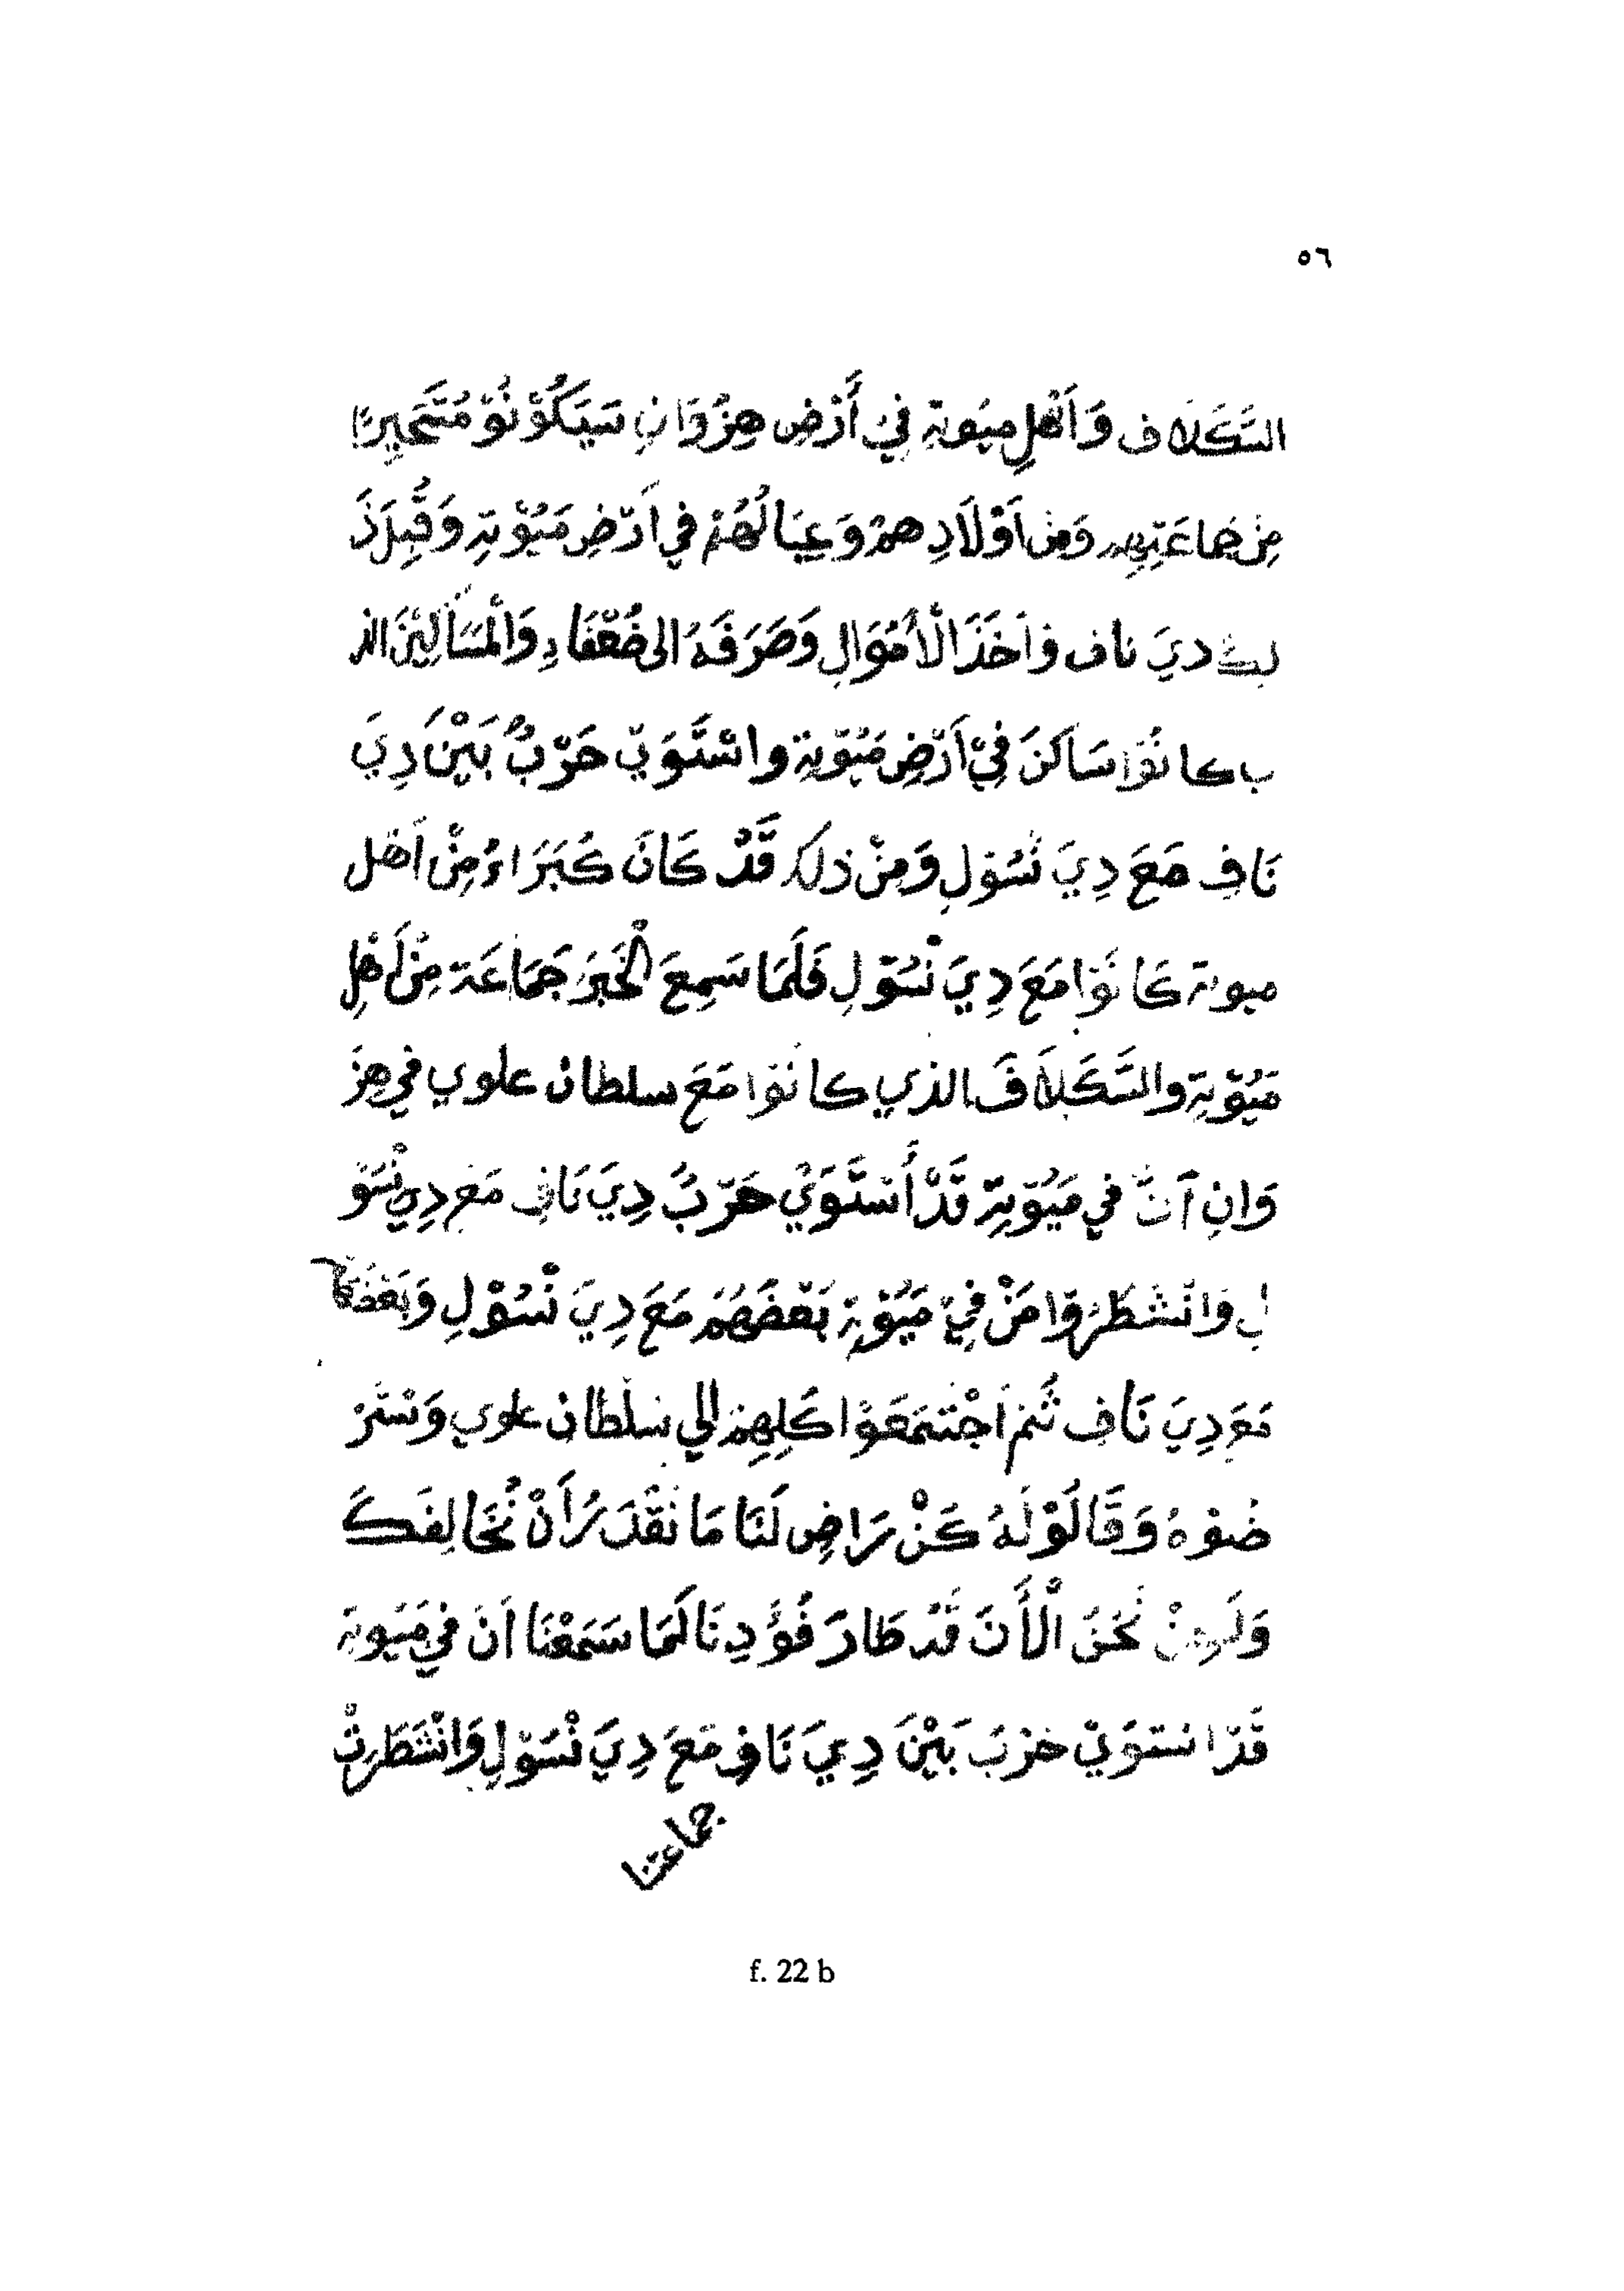 ٥٦
السَّكَلَاف وَاَهْلِ مِيُوتِة فِيْ أَرْضِ هِزُوَانِ سَيَكُوْنُوْ مُتَحَيِرًا
مِنْ جَمَاعَتِهِم وَمِنْ اَوْلَادِهِمْ وَعِيَالُهُمْ فِي اَرْضِ مَيُوْتِة وَقُبِلَ ذَ
لِكَ دِيَ نَاف وَاَخَذَ الْاَمْوَالِ وَصَرَفَهُ الى ضُعْفَاءِ وَالْمَسَاكِيْنَ الذ
ي كانُوْا سَاكَنَ فِيْ اَرْضِ مَيُوْتِة واسْتَوَيْ حَرْبٌ بَيْنَ دِيَ
نَافِ مَعَ دِيَ نْسُوْلِ وَمِنْ ذلك قَدْ كَانَ كُبَرَاءُ مِنْ اَهْل
ميوتة كَانُوْا مَعَ دِيَ نْسُوْلِ فَلَمَا سَمِعَ الْخَبَرَ جَمَاعَة مِنْ اَهْلِ
مَيُوْتِة والسَّكَلَافَ الذي كانُوْا مَعَ سلطان علوي في هِزَ
وَانِ اَنَّ في مَيُوْتِة قَدْ أَسْتَوَيْ حَرْبٌ دِيَ نَافِ مَعَ دِيَ نْسُوْ
لِ وَانْشَطَرُوْا مَنْ فِيْ مَيُوْتِة بَعْضَهُمْ مَعَ دِيَ نْسُوْلِ وَبَعْضُهَا
مَعَ دِيَ نَافِ ثُمَ اَجْتَمَعَوْا كَلِهِمْ الي سلْطان علوي وَسْتَرْ
ضُوْهُ وَقَالُوْ لَهُ كَنْ رَاضِ لَنَا مَا نَقْدَرُ أَنْ نُخَالِفَكَ
وَلَكِنْ نَحْنُ الْأَنَ قَدْ طَارَ فُؤَدِنَا لَمَا سَمَعْنَا اَنَ في مَيُوتِة
قَدْ اسْتَوَيْ حَرْبَ بَيْنَ دِيَ نَافِ مَعَ دِيَ نْسُوْلِ وَانْشَطَرَتْ
جماعتنا
f. 22 b